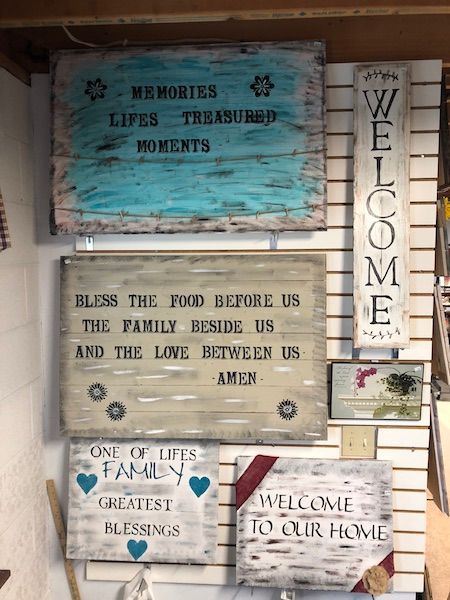 MEMORIES
LIFES TREASURED
MOMENTS
WELCOME
BLESS THE FOOD BEFORE US
THE FAMILY BESIDE US
AND THE LOVE BETWEEN US
-AMEN-
ONE OF LIFES
FAMILY
GREATEST
BLESSINGS
WELCOME
TO OUR HOME